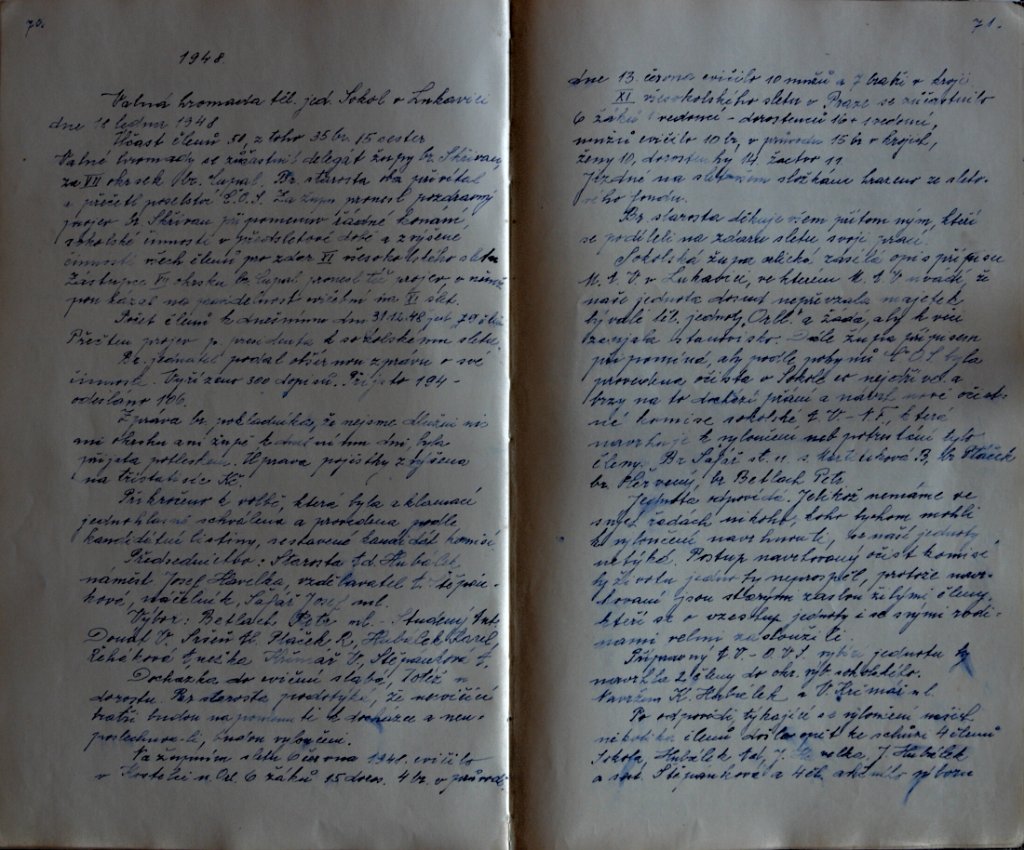 70.
1948
Valná hromada těl. jed. Sokol v Lukavici
dne 18 ledna 1948
Účast členů 50, z toho 35 br. 15 sester
Valné hromady se zúčastnil delegát župy br. Skřivan,
za VII okrsek br. Lupal. Br. starosta oba přivítal
a přečetl poselství Č.O.S. Za župu pronesl pozdravný
projev br. Skřivan připomenuv řádné konání
sokolské činnosti v předsletové době a zvýšené
činnosti všech členů pro zdar XI všesokolského sletu
Zástupce VII okrsku br. Lupal pronesl též projev, v němž
poukázal na pravidelnost cvičení na XI slet.
Počet členů k dnešnímu dnu 31.12.48 jest
Přečten projev p. presidenta k sokolskému sletu.
Br. jednatel podal obšírnou zprávu o své
činnosti. Vyřízeno 300 dopisů. Přijato 194 -
odesláno 106.
Zpráva br. pokladníka, že nejsme dlužni nic
ani okrsku ani župě k dnešnímu dni byla
přijata potleskem. Úprava pojistky zvýšena
na třistatisíc Kč.
Přikročeno k volbě, která byla aklamací
jednohlasně schválena a provedena podle
kandidátní listiny, sestavené kandidát. komisí
Předsednictvo: Starosta Ed. Hubálek,
náměst. Josef Havelka, vzdělavatel L. Štěpán-
ková, náčelník, Šafář Josef ml.
Výbor: Betlach Petr ml. - Studený Ant.
Donát V. Sršeň Al. Ptáček R., Hubálek Karel,
Řeháková Anežka Krimář V., Štěpánková
Docházka do cvičení slabá, totéž u
dorostu. Br. starosta podotýká, že necvičící
bratři budou napomenuti k docházce a neu-
poslechnou-li, budou vyloučeni.
Na župním sletu 6 června 1948 cvičilo
v Kostelci n. Orl. 6 žáků 15 doros. 4 br. v průvodu
71.
dne 13. června cvičilo 10 mužů a 7 bratří v kroji
XI všesokolského sletu v Praze se zúčastnilo
6 žáků 1 vedoucí - dorostenců 16 + 1 vedoucí,
mužů cvičilo 10 br., v průvodu 15 br. v krojích,
ženy 10, dorostenky 14, žactvo 11
Jízdné na sletovém složkám hrazeno ze sleto-
vého fondu.
Br. starosta děkuje všem přítomným, kteří
se podíleli na zdaru sletu svojí prací.
Sokolská župa orlická zasílá opis přípisu
M.A.V. v Lukavici, ve kterém M.A.V. uvádí, že
naše jednota dosud nepřevzala majetek
bývalé těl. jednoty "Orel" a žádá, aby k věci
zaujala stanovisko. Dále župa přípisem
připomíná, aby podle pokynů Č.O.S. byla
provedena očista v Sokole co nejdříve a
brzy na to dochází přání a návrh nové očist-
né komise sokolské A.V.-N.F., která
navrhuje k vyloučení neb potrestání tyto
členy. Br. Šafář st. a s. B., br. Ptáček
br. Červený, br. Betlach Petr
Jednota odpovídá. Jelikož nemáme ve
svých řadách nikoho, koho bychom mohli
k vyloučení navrhnouti, se naší jednoty
netýká. Postup navrhovaný očist. komise,
by životu jednoty neprospěl, protože navr-
hovaní jsou starým zasloužilými členy,
kteří se o vzestup jednoty i se svými rodi-
nami velmi zasloužili.
Přípravný A.V.-O.V.S. vybízí jednotu by
navrhla 2 členy do okr. výb. sokolského.
Navržen K. Hubálek a V. Krimář ml.
Po odpovědi, týkající se vyloučení našich
několika členů došlo opět ke schůzi 4 členů
Sokola, Hubálek Ed, J. Havelka, J. Hubálek
a sest. Štěpánková a 4 čl. akčního výboru